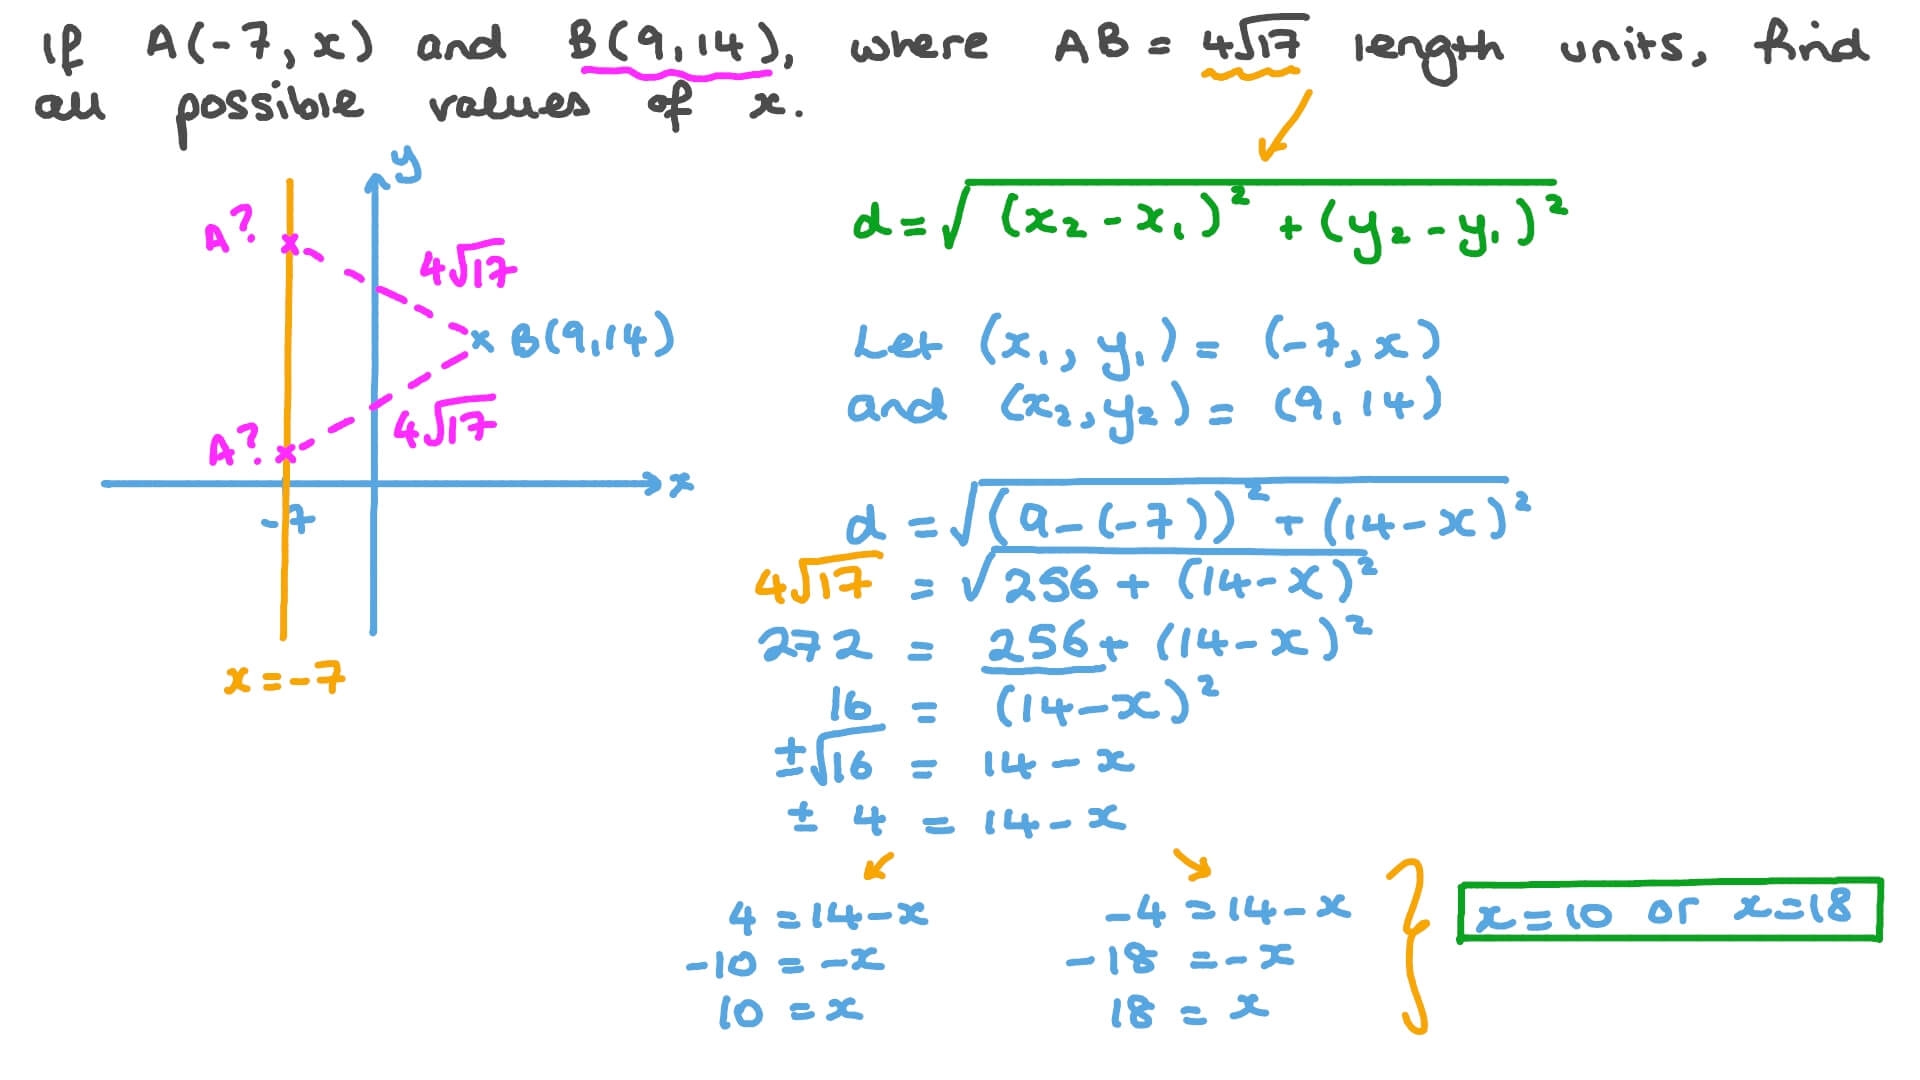 If A(-7, x) and B(9, 14), where AB = 4√17 length units, find
all possible values of x.
y
A?
4√17
B(9, 14)
4√17
A?
x
-7
x = -7
d = √((x₂ - x₁)² + (y₂ - y₁)²)
Let (x₁, y₁) = (-7, x)
and (x₂, y₂) = (9, 14)
d = √((9 - (-7))² + (14 - x)²)
4√17 = √(256 + (14 - x)²)
272 = 256 + (14 - x)²
16 = (14 - x)²
±√16 = 14 - x
± 4 = 14 - x
4 = 14 - x
-10 = -x
10 = x
-4 = 14 - x
-18 = -x
18 = x
x = 10 or x = 18